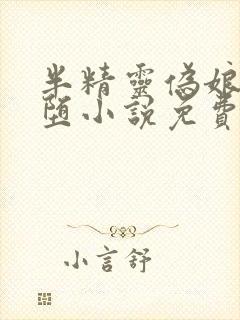 半精靈偽娘
墮小説免費
小言舒